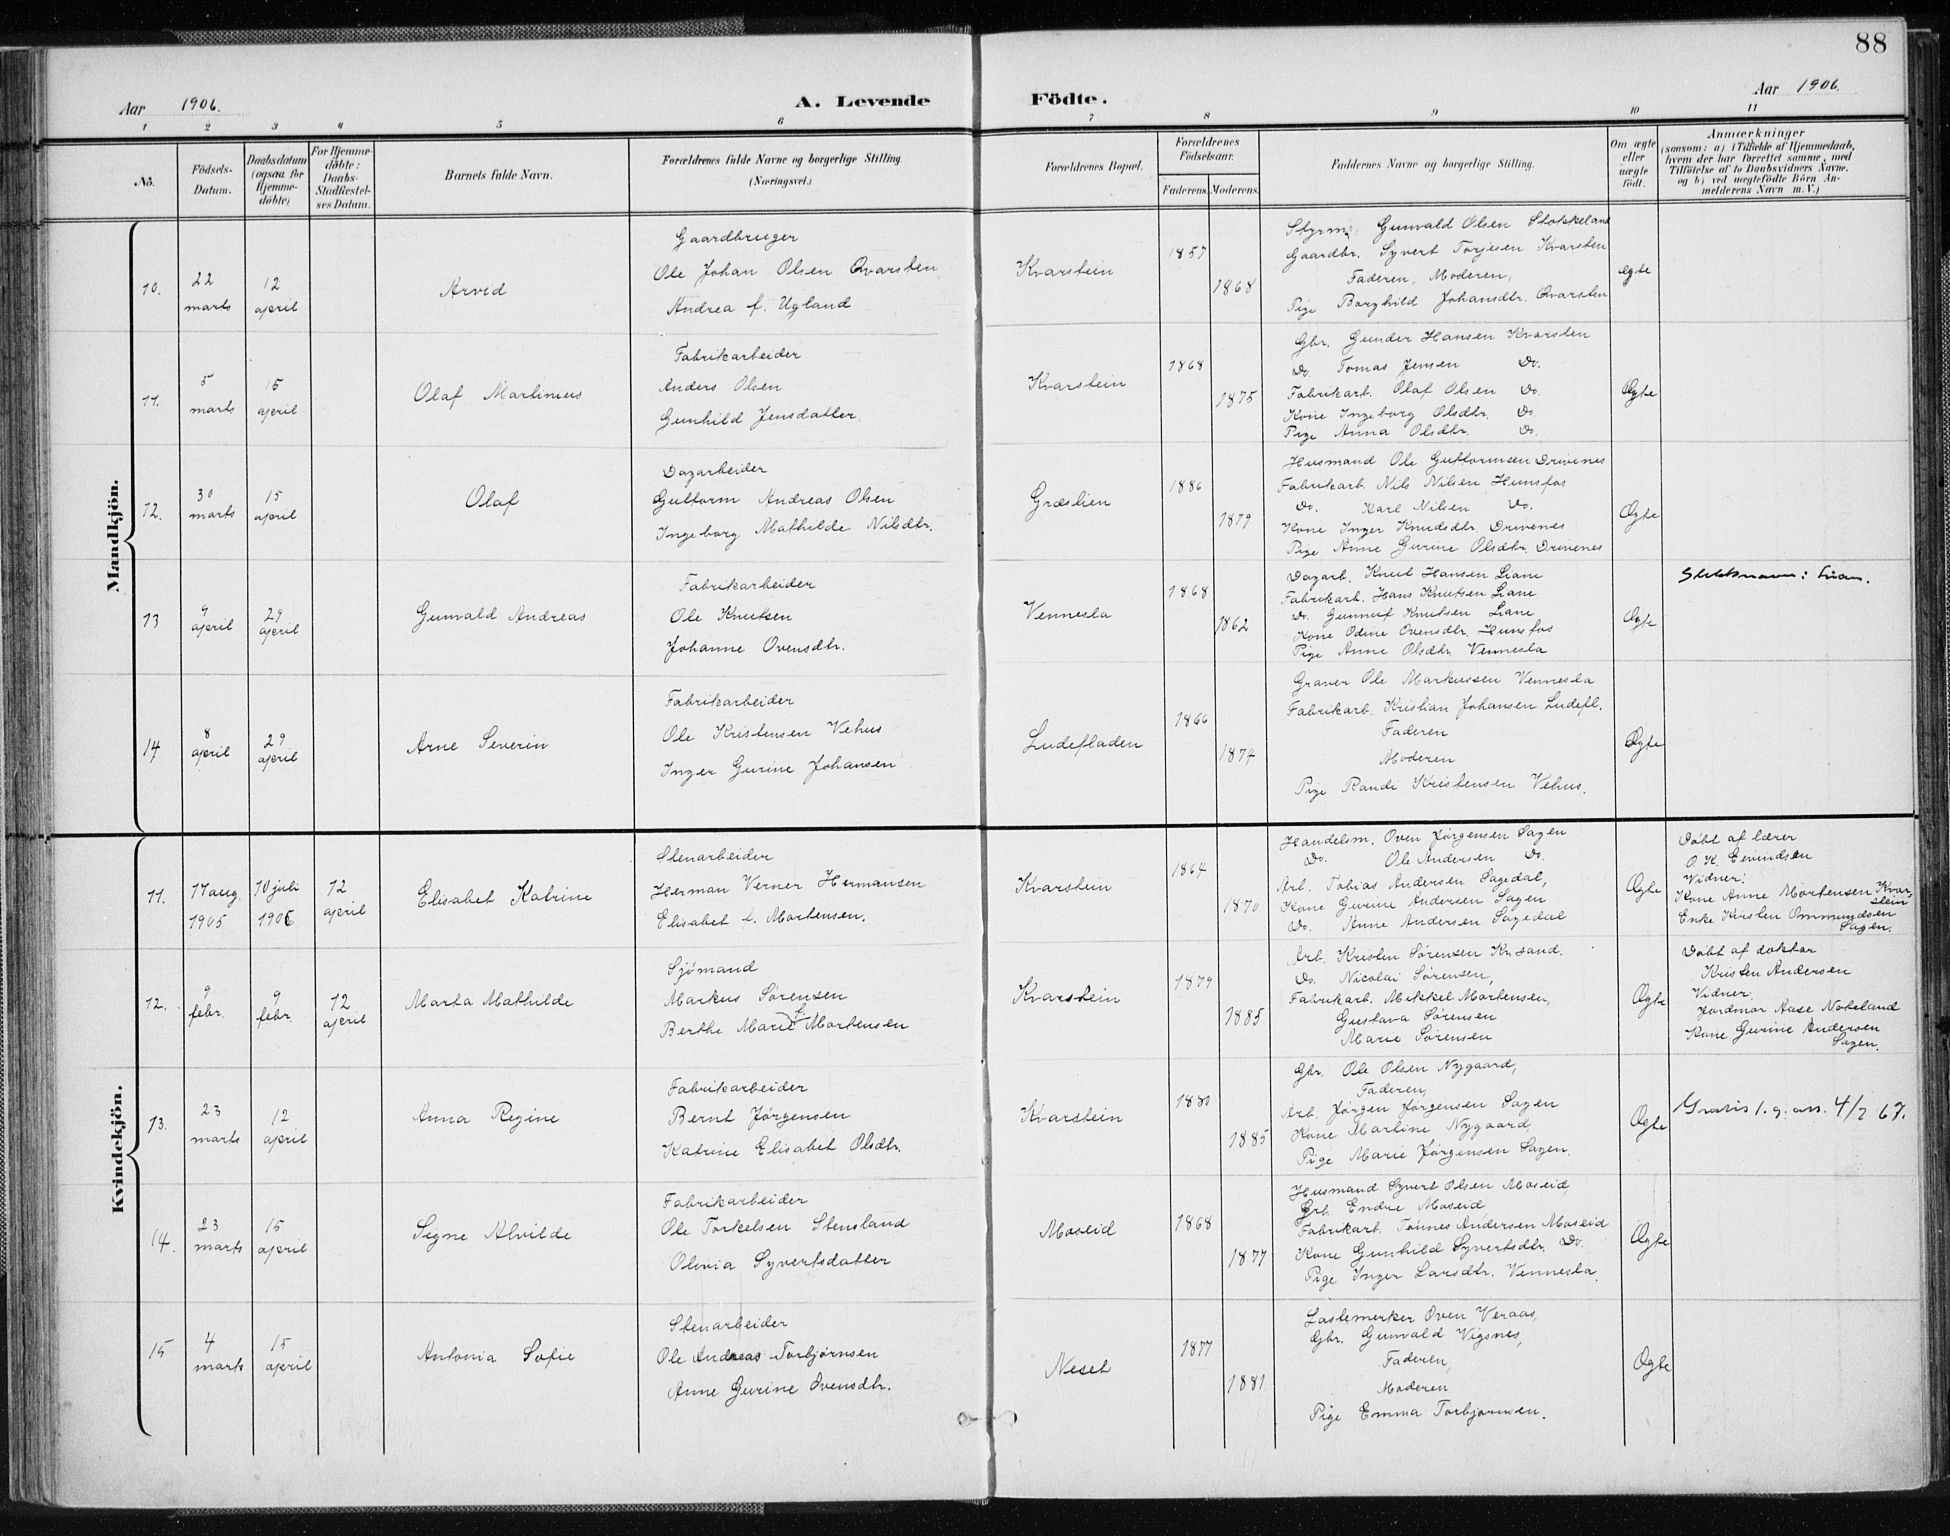 88
Aar 1906. A. Levende Födte. Aar 1906.
1 2 3 4 5 6 7 8 9 10 11
No.
Födsels-
Datum.
Daabsdatum
(ogsaa for
Hjemme-
döbte)
For Hjemme-
döbte:
Daabs-
Stadfestel-
ses Datum.
Barnets fulde Navn.
Forældrenes fulde Navne og borgerlige Stilling.
(Næringsvei.)
Forældrenes Bopæl.
Forældrenes
Födselsaar.
Faderens. Moderens.
Faddernes Navne og borgerlige Stilling.
Om ægte
eller
uægte
født.
Anmærkninger
(saasom: a) i Tilfælde af Hjemmedaab,
hvem der har forrettet samme, med
Tilföielse af to Daabsvidners Navne.
og b) ved uægtefödte Börn An-
melderens Navn m. V.)
Mandkjön.
10.
22
marts
12
april
Arvid
Gaardbruger
Ole Johan Olsen Qvarsten
Andrea f. Ugland
Kvarstein
1857
1868
Styrm. Gunvald Olsen Stokkeland
Gaardbr. Syvert Torjesen Kvarsten
Faderen, Moderen,
Pige Borghild Johansdtr. Qvarsten
egte
11.
5
marts
15
april
Olaf Martinius
Fabrikarbeider
Anders Olsen
Gunhild Jensdatter.
Kvarstein
1868
1875
Gbr. Gunder Hansen Kvarsten
Do. Tomas Jensen Do.
Fabrikarb. Olaf Olsen Do.
Kone Ingeborg Olsdtr. Do.
Pige Anna Olsdtr. Do.
Ægte
12.
30
marts
15
april
Olaf
Dagarbeider
Guttorm Andreas Olsen
Ingeborg Mathilde Nilsdtr.
Græslien
1886
1879
Husmand Ole Guttormsen Drivenes
Fabrikarb. Nils Nilsen Hunsfos
Do. Karl Nilsen Do.
Kone Inger Knudsdtr. Drivenes
Pige Anne Gurine Olsdtr. Drivenes
Ægte
13
9
april
29
april
Gunvald Andreas
Fabrikarbeider
Ole Knutsen
Johanne Ovensdtr.
Vennesla
1868
1862
Dagarb. Knut Hansen Liane
Fabrikarb. Hans Knutsen Liane
Do. Gunnuf Knutsen Liane
Kone Odine Ovensdtr. Hunsfos
Pige Anne Olsdtr. Vennesla
Ægte
Slektsnavn: Lian.
14
8
april
29
april
Arne Severin
Fabrikarbeider
Ole Kristensen Vehus
Inger Gurine Johansen
Ludefladen
1866
1874
Graver Ole Markussen Vennesla
Fabrikarb. Kristian Johansen Ludefl.
Faderen
Moderen
Pige Randi Kristensen Vehus.
Ægte
Kvindekjön.
11.
17 aug.
1905
10 juli
1905
12
april
Elisabet Katrine
Stenarbeider
Herman Verner Hermansen
Elisabet f. Mortensen.
Kvarstein
1864
1870
Handelsm. Oven Jørgensen Sagen
Do. Ole Andersen Do.
Arb. Tobias Andersen Sagedal,
Kone Gurine Andersen Sagen
Do. Anne Andersen Sagedal
Ægte
Døbt af lærer
O. K. Eivindsen
Vidner:
Kone Anne Mortensen Kvar-
stein
Enke Kirsten Ommundsen
Sagen.
12.
9
febr.
9
febr.
12
april
Marta Mathilde
Sjømand
Markus Sørensen
Berthe Marie f. Mortensen
Kvarstein
1879
1885
Arb. Kristen Sørensen Kr.sand.
Do. Nicolai Sørensen,
Fabrikarb. Mikkel Mortensen,
Gustava Sørensen
Marie Sørensen
Ægte
Døbt af doktor
Kristen Andersen
Vidner:
Jordmor Aase Nokeland
Kone Gurine Andersen
Sagen.
13.
23
marts
12
april
Anna Regine
Fabrikarbeider
Bernt Jørgensen
Katrine Elisabet Olsdtr.
Kvarstein
1880
1885
Gbr. Ole Olsen Nygaard,
Faderen,
Arb. Jørgen Jørgensen Sagen
Kone Martine Nygaard,
Pige Marie Jørgensen Sagen.
Ægte
Gratis 4/2 67.
14.
23
marts
15
april
Signe Alvilde
Fabrikarbeider
Ole Torkelsen Stensland
Olevia Syvertsdatter
Moseid
1868
1877
Husmand Syvert Olsen Moseid,
Gbr. Endre Moseid,
Fabrikarb. Tønnes Andersen Moseid
Kone Gunhild Syvertsdtr. Do.
Pige Inger Larsdtr. Vennesla.
Ægte
15
4
marts
15
april
Antonia Sofie
Stenarbeider
Ole Andreas Torbjørnsen
Anne Gurine Ovensdtr.
Neset
1877
1881
Lastemerker Oven Veraas,
Gbr. Gunvald Vigsnes,
Faderen,
Moderen
Pige Emma Torbjørnsen.
Ægte